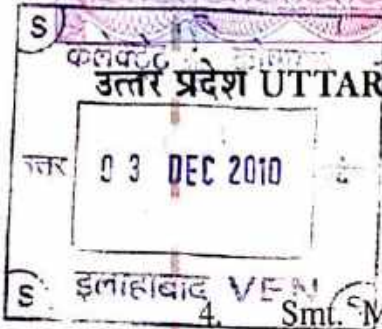 S
कलक्ट्रेट
उत्तर प्रदेश UTTAR
उत्तर 03 DEC 2010
S इलाहाबाद VEN S
4. Smt. M